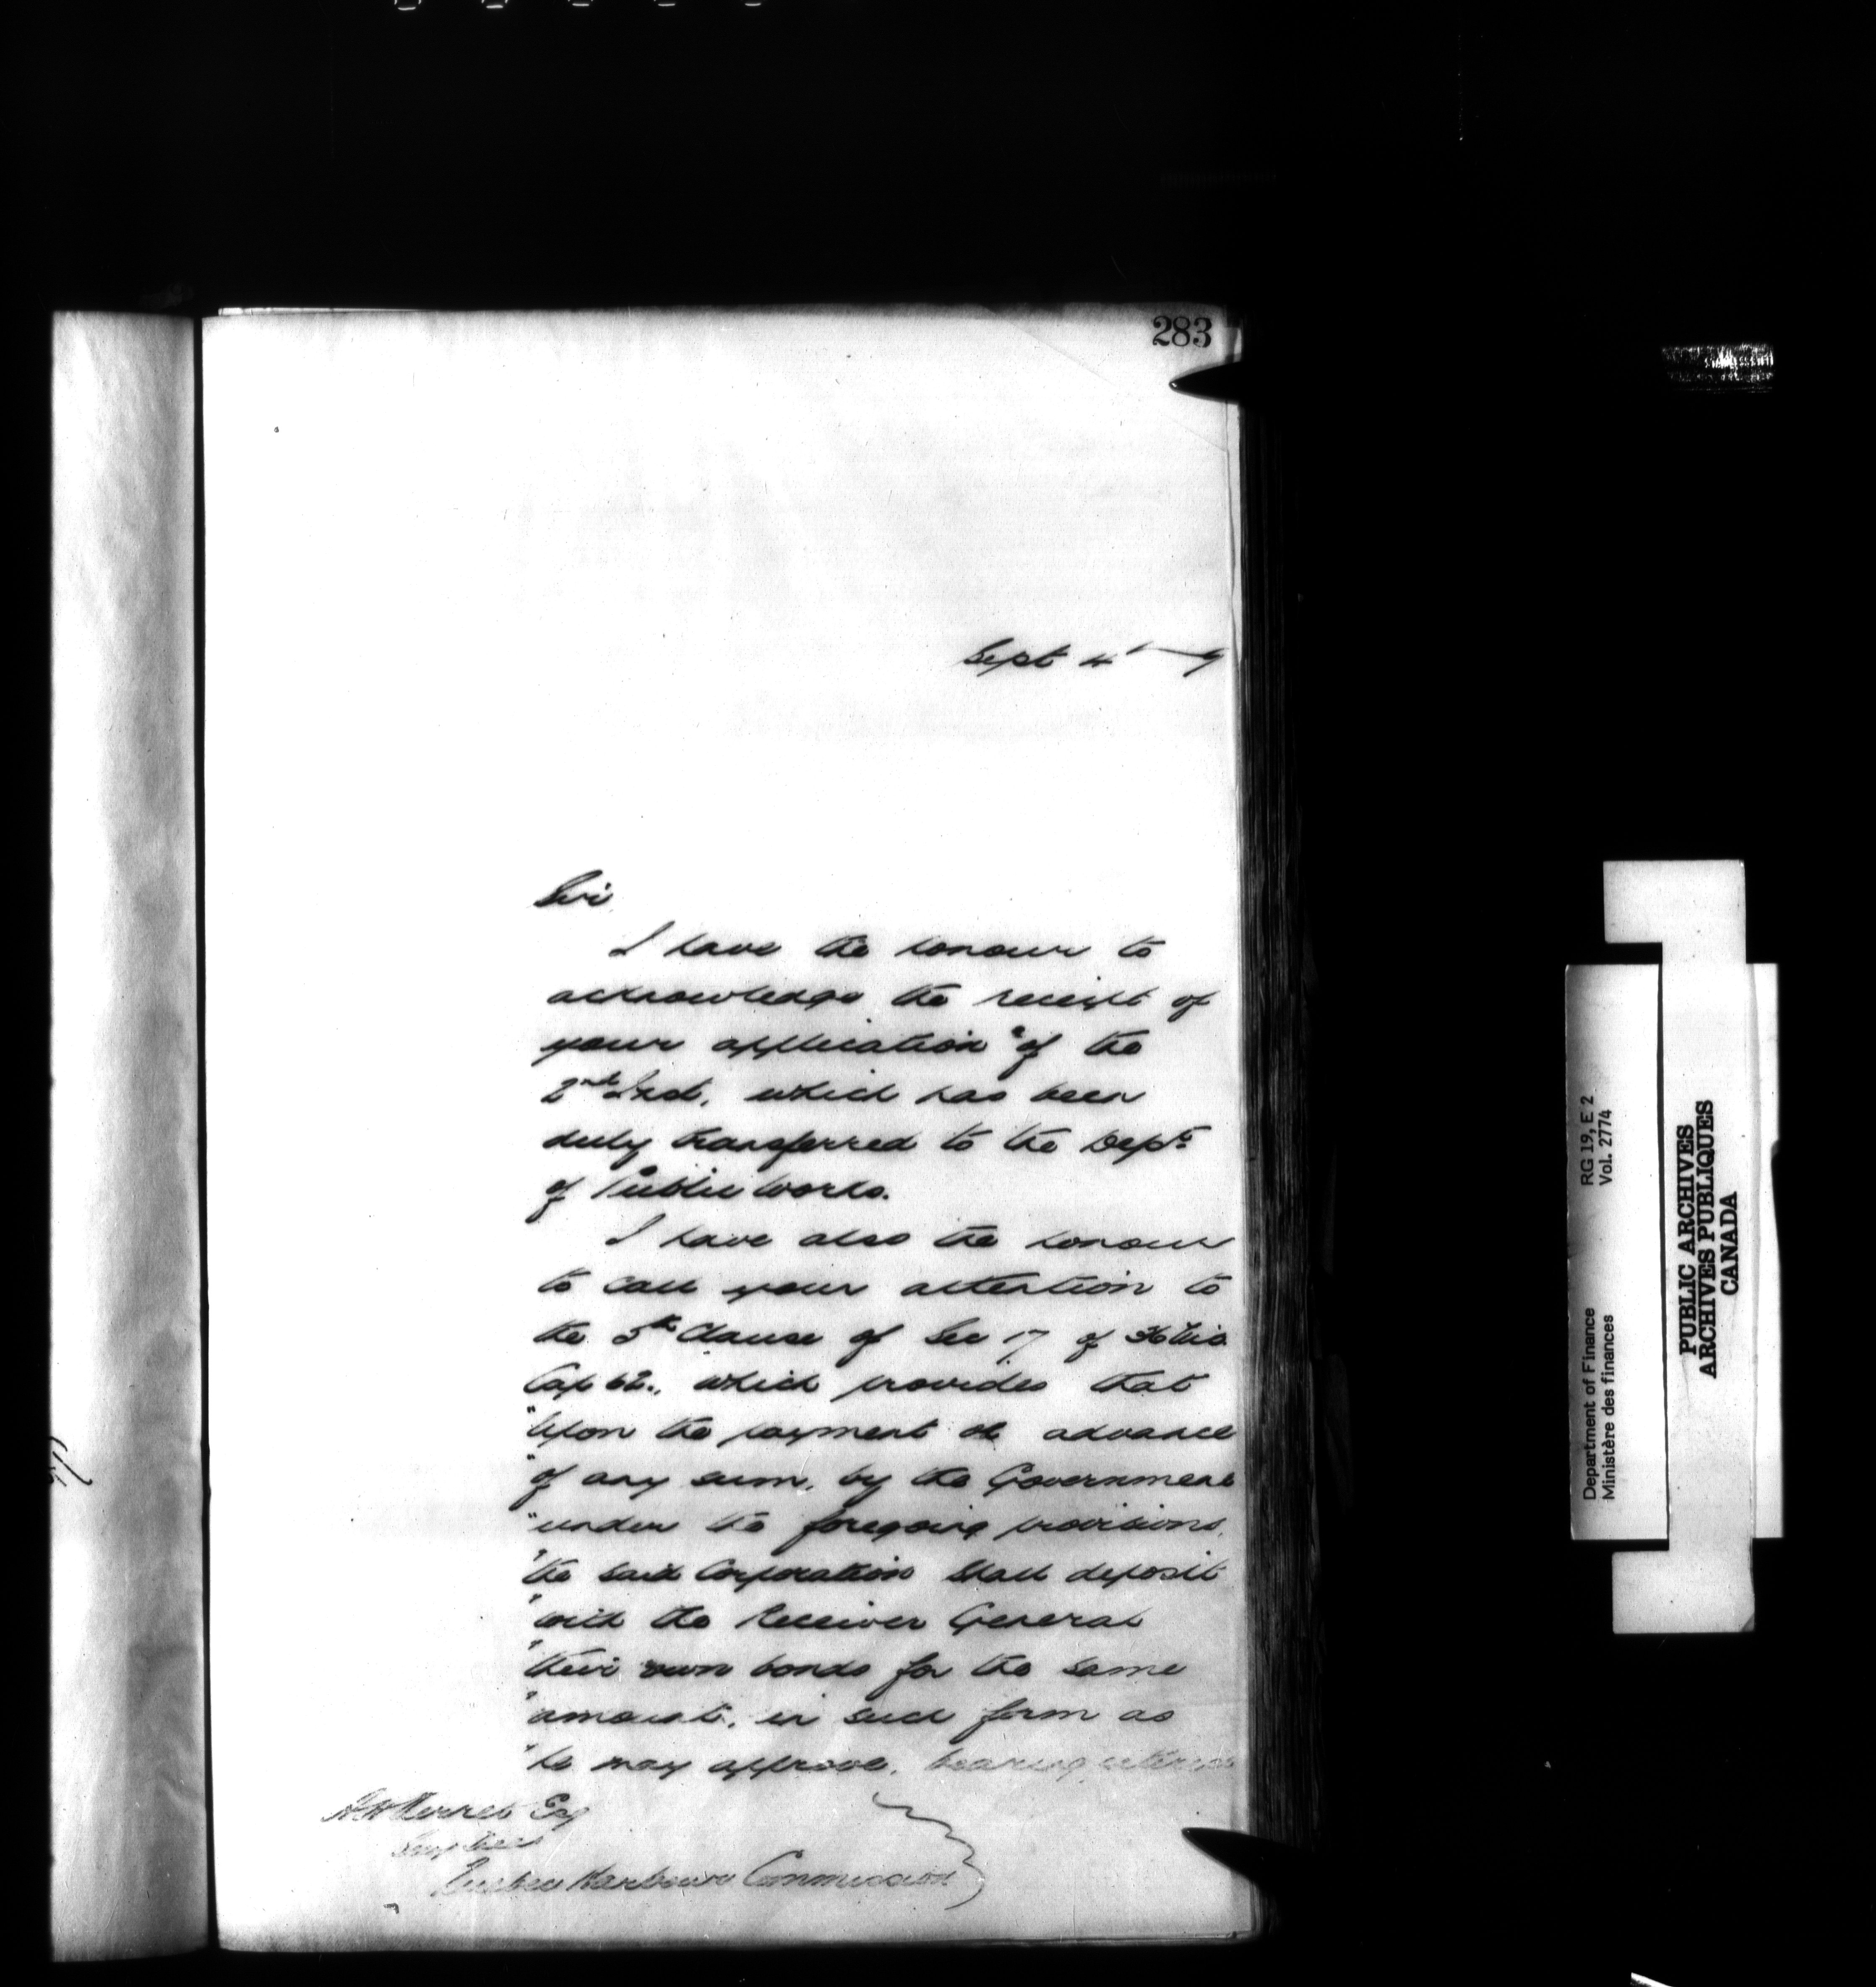 283
Sept 4
Sir
I have the honour to
acknowledge the receipt of
your application of the
2nd Inst. which has been
duly transferred to the Dept
of Public Works.
I have also the honour
to call your attention to
the 5th Clause of Sec 17 of 36 Vic
Cap 62., which provides that
"Upon the payment or advance
"of any sum, by the Government
"under the foregoing provisions,
"the said Corporation shall deposit
"with the Receiver General
"their own bonds for the same
"amount, in such form as
"he may approve, bearing interest
Esq
Quebec Harbour Commission
Department of Finance RG 19, E 2
Ministère des finances Vol. 2774
PUBLIC ARCHIVES
ARCHIVES PUBLIQUES
CANADA